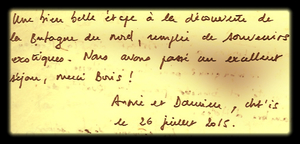 Une bien belle étape à la découverte de
la Bretagne du nord, remplie de souvenirs
exotiques. Nous avons passé un excellent
séjour, merci Boris !
Annie et Danielle, cht'is
le 26 juillet 2015.